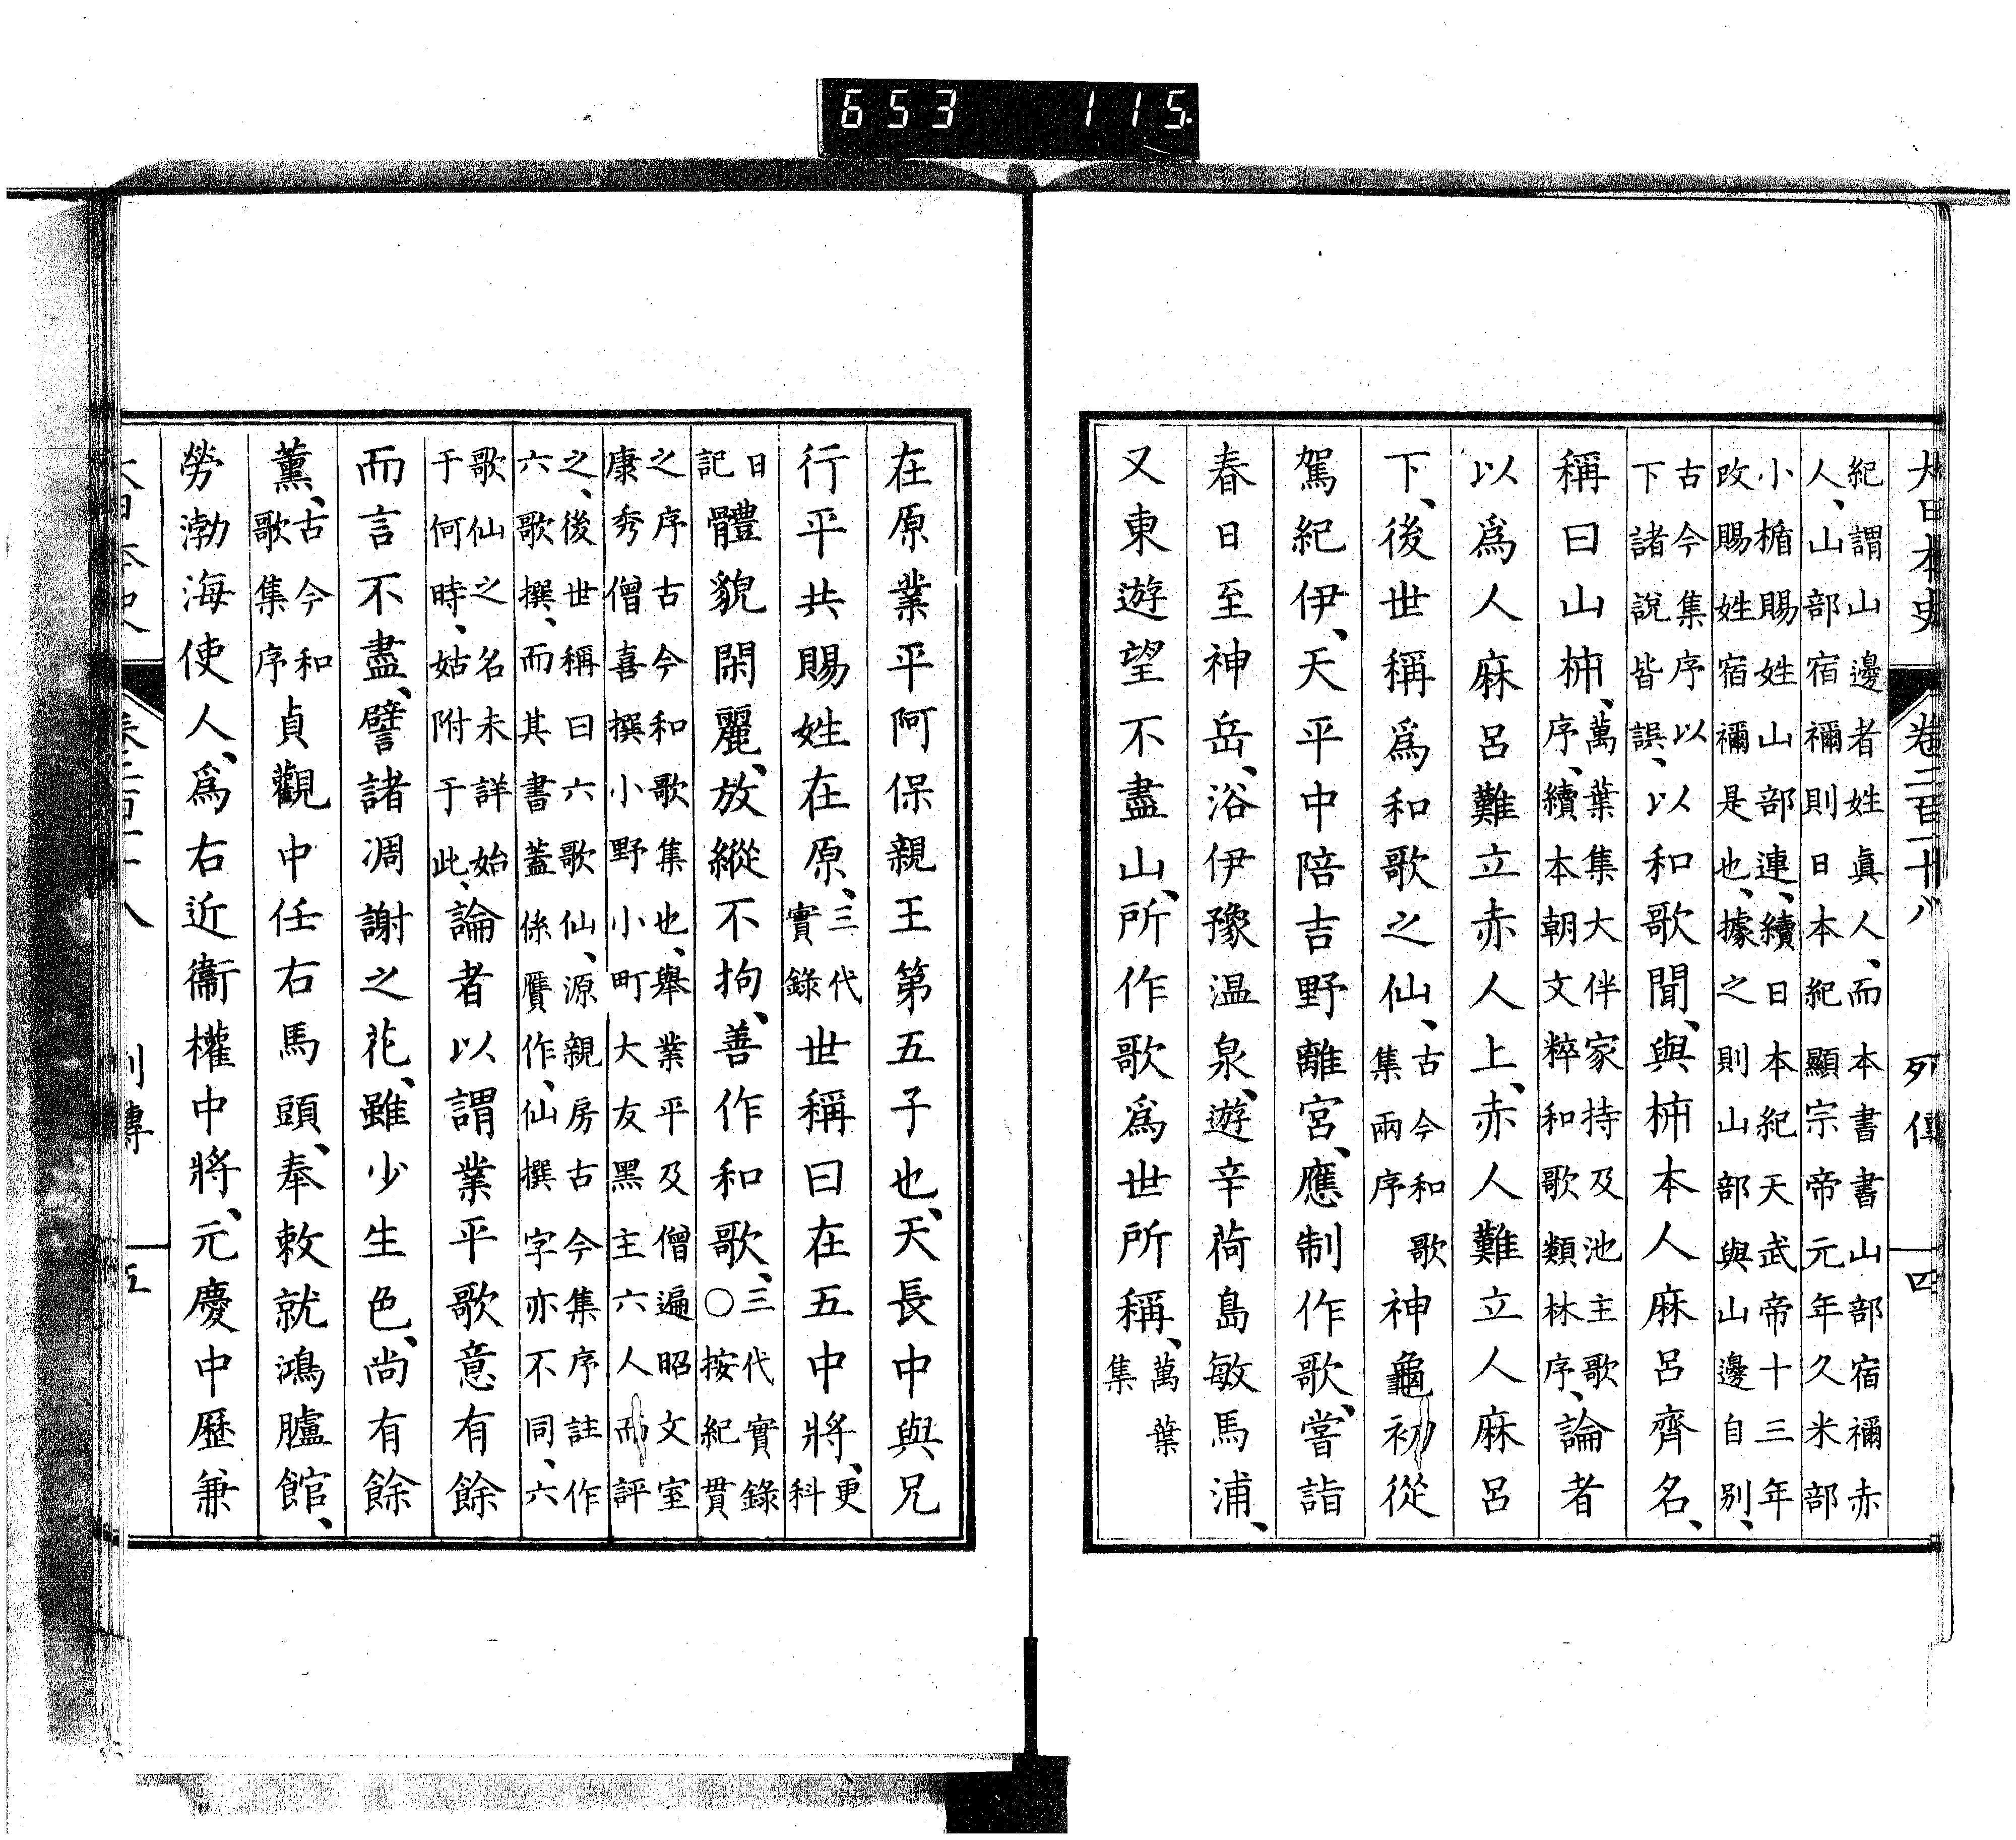 653 115.
大日本史 卷二百二十八 列傳 四
紀謂山邊者姓眞人、而本書書山部宿禰赤
人、山部宿禰則日本紀顯宗帝元年久米部
小楯賜姓山部連、續日本紀天武帝十三年
改賜姓宿禰是也、據之則山部與山邊自別、
古今集序以
下諸說皆誤、以和歌聞、與柿本人麻呂齊名、
稱曰山柿、萬葉集大伴家持及池主歌
序、續本朝文粹和歌類林序、論者
以爲人麻呂難立赤人上、赤人難立人麻呂
下、後世稱爲和歌之仙、古今和歌
集兩序神龜初從
駕紀伊、天平中陪吉野離宮、應制作歌、嘗詣
春日至神岳、浴伊豫温泉、遊辛荷島敏馬浦、
又東遊望不盡山、所作歌爲世所稱、萬葉
集
在原業平阿保親王第五子也、天長中與兄
行平共賜姓在原、三代
實錄世稱曰在五中將、更
科
日
記體貌閑麗、放縱不拘、善作和歌、三代實錄
○按紀貫
之序古今和歌集也、舉業平及僧遍昭文室
康秀僧喜撰小野小町大友黑主六人而評
之、後世稱曰六歌仙、源親房古今集序註作
六歌撰、而其書蓋係贋作、仙撰字亦不同、六
歌仙之名未詳始
于何時、姑附于此、論者以謂業平歌意有餘
而言不盡、譬諸凋謝之花、雖少生色、尚有餘
薰、古今和
歌集序貞觀中任右馬頭、奉敕就鴻臚館、
勞渤海使人、爲右近衞權中將、元慶中歷兼
大日本史 卷二百二十八 列傳 五